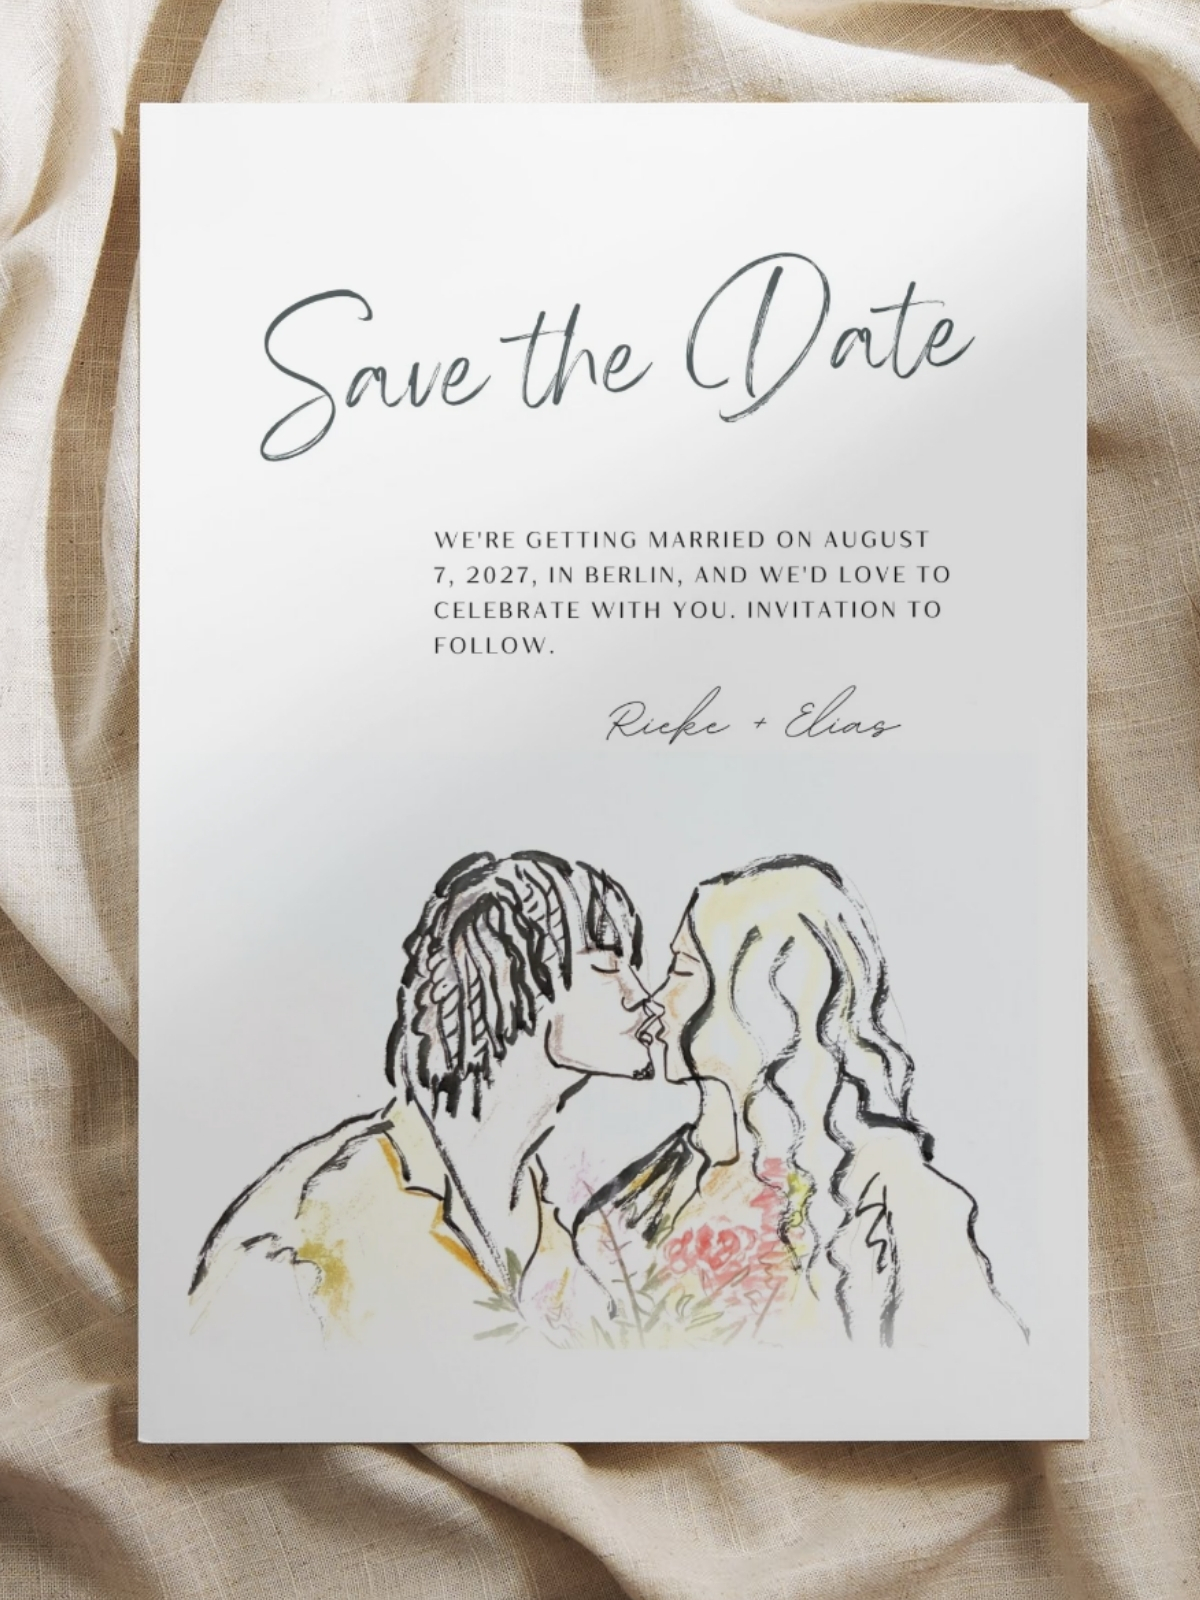 Save the Date
WE'RE GETTING MARRIED ON AUGUST
7, 2027, IN BERLIN, AND WE'D LOVE TO
CELEBRATE WITH YOU. INVITATION TO
FOLLOW.
Rieke + Elias